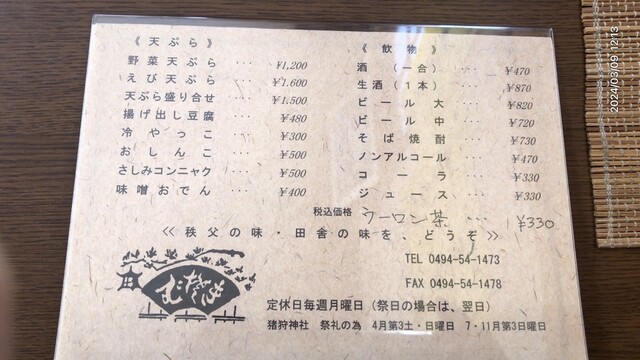 《 天ぷら 》
野菜天ぷら ··· ¥1,200
えび天ぷら ··· ¥1,600
天ぷら盛り合せ ··· ¥1,500
揚げ出し豆腐 ··· ¥480
冷やっこ ··· ¥300
おしんこ ··· ¥500
さしみコンニャク ··· ¥500
味噌おでん ··· ¥400
《 飲物 》
酒（一合） ··· ¥470
生酒（1本） ··· ¥870
ビール大 ··· ¥820
ビール中 ··· ¥720
そば焼酎 ··· ¥730
ノンアルコール ··· ¥470
コーラ ··· ¥330
ジュース ··· ¥330
税込価格
ウーロン茶 ··· ¥330
≪ 秩父の味・田舎の味を、どうぞ ≫
TEL 0494-54-1473
FAX 0494-54-1478
定休日毎週月曜日（祭日の場合は、翌日）
猪狩神社 祭礼の為 4月第3土・日曜日 7・11月第3日曜日
2024/03/09 12:13